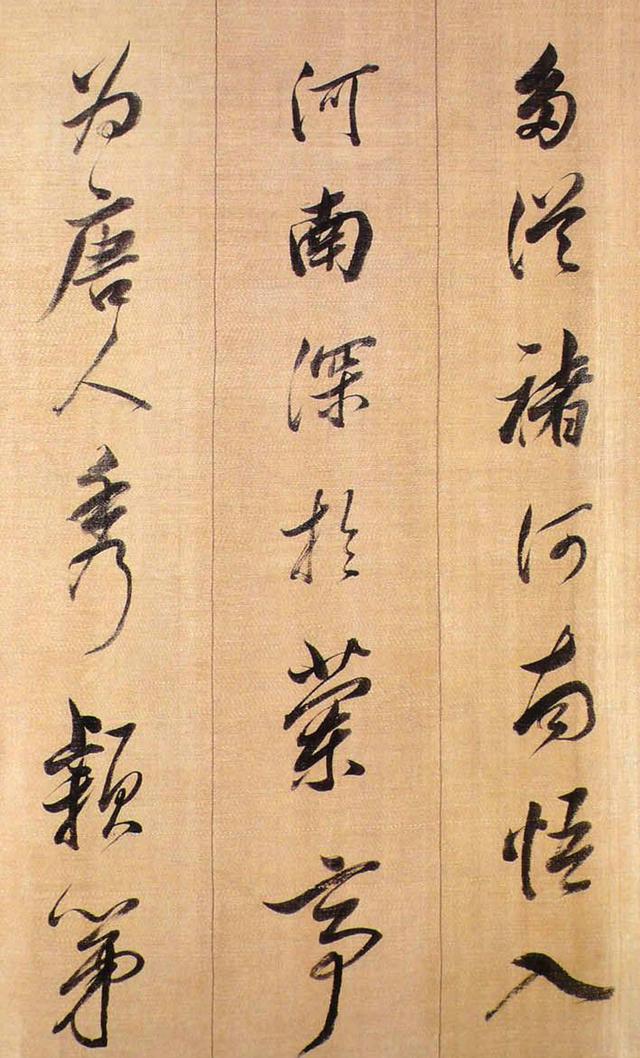 多從褚河南悟入
河南深於蘭亭
為唐人秀穎第